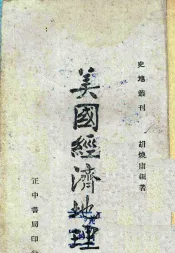 史地叢刊
胡煥庸編著
美國經濟地理
正中書局印行